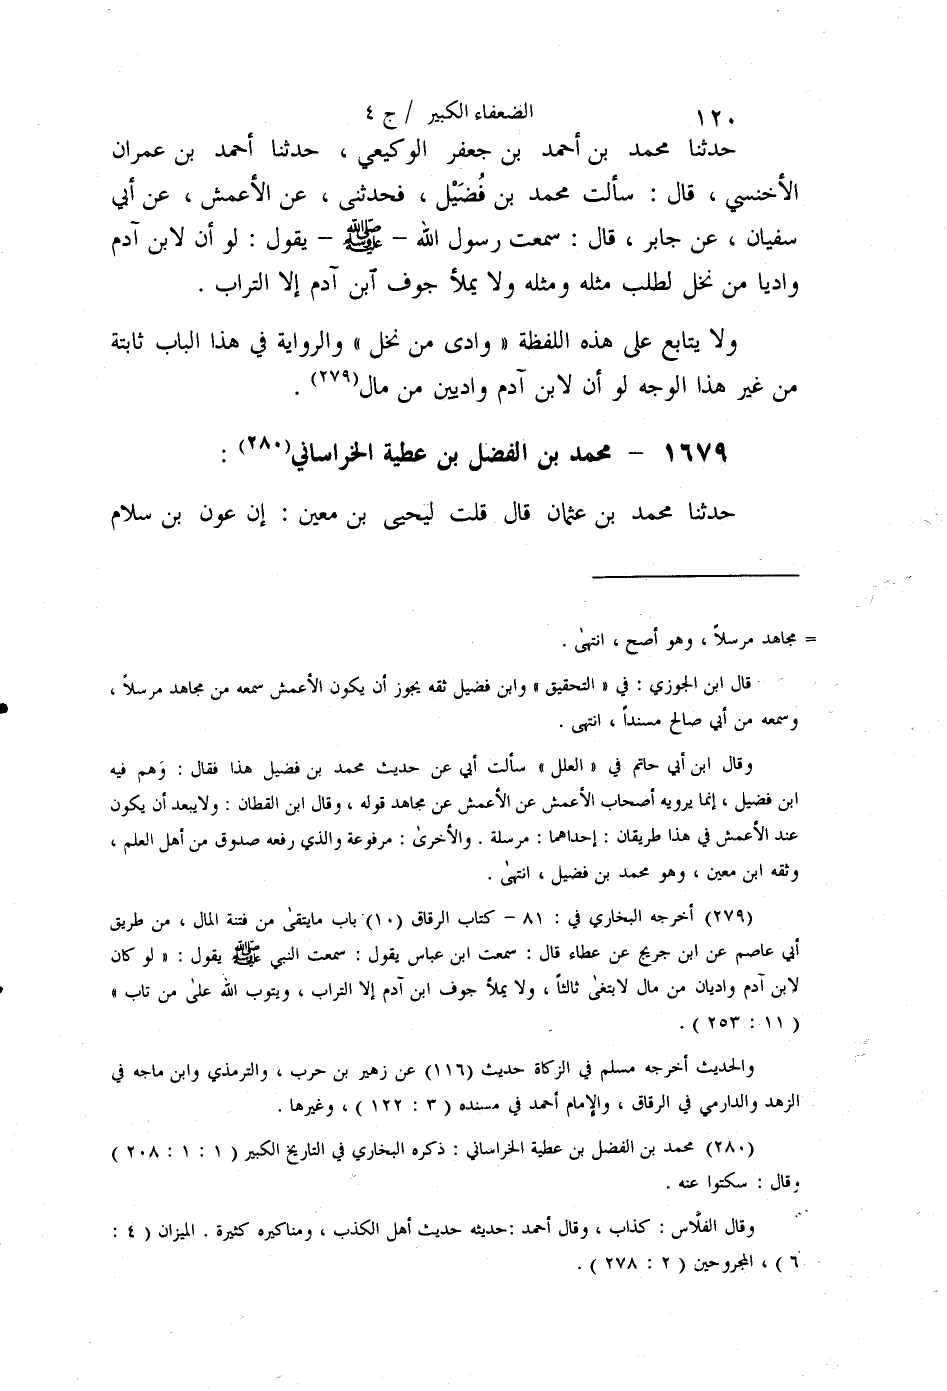 ١٢٠ الضعفاء الكبير / ج ٤
حدثنا محمد بن أحمد بن جعفر الوكيعي ، حدثنا أحمد بن عمران
الأخنسي ، قال : سألت محمد بن فُضَيْل ، فحدثنى ، عن الأعمش ، عن أبي
سفيان ، عن جابر ، قال : سمعت رسول الله – ﷺ – يقول : لو أن لابن آدم
واديا من نخل لطلب مثله ومثله ولا يملأ جوف ٱبن آدم إلا التراب .
ولا يتابع على هذه اللفظة « وادى من نخل » والرواية في هذا الباب ثابتة
من غير هذا الوجه لو أن لابن آدم واديين من مال(٢٧٩) .
١٦٧٩ – محمد بن الفضل بن عطية الخراساني(٢٨٠) :
حدثنا محمد بن عثمان قال قلت ليحيى بن معين : إن عون بن سلام
= مجاهد مرسلاً ، وهو أصح ، انتهىٰ .
قال ابن الجوزي : في « التحقيق » وابن فضيل ثقه يجوز أن يكون الأعمش سمعه من مجاهد مرسلاً ،
وسمعه من أبي صالح مسنداً ، انتهى .
وقال ابن أبي حاتم في « العلل » سألت أبي عن حديث محمد بن فضيل هذا فقال : وَهم فيه
ابن فضيل ، إنما يرويه أصحاب الأعمش عن الأعمش عن مجاهد قوله ، وقال ابن القطان : ولايبعد أن يكون
عند الأعمش في هذا طريقان : إحداهما : مرسلة . والأخرىٰ : مرفوعة والذي رفعه صدوق من أهل العلم ،
وثقه ابن معين ، وهو محمد بن فضيل ، انتهىٰ .
(٢٧٩) أخرجه البخاري في : ٨١ – كتاب الرقاق (١٠) باب مايتقىٰ من فتنة المال ، من طريق
أبي عاصم عن ابن جريج عن عطاء قال : سمعت ابن عباس يقول : سمعت النبي ﷺ يقول : « لو كان
لابن آدم واديان من مال لابتغىٰ ثالثاً ، ولا يملأ جوف ابن آدم إلا التراب ، ويتوب الله علىٰ من تاب »
( ١١ : ٢٥٣ ) .
والحديث أخرجه مسلم في الزكاة حديث (١١٦) عن زهير بن حرب ، والترمذي وابن ماجه في
الزهد والدارمي في الرقاق ، والإمام أحمد في مسنده ( ٣ : ١٢٢ ) ، وغيرها .
(٢٨٠) محمد بن الفضل بن عطية الخراساني : ذكره البخاري في التاريخ الكبير ( ١ : ١ : ٢٠٨ )
وقال : سكتوا عنه .
وقال الفلّاس : كذاب ، وقال أحمد :حديثه حديث أهل الكذب ، ومناكيره كثيرة . الميزان ( ٤ :
٦ ) ، المجروحين ( ٢ : ٢٧٨ ) .